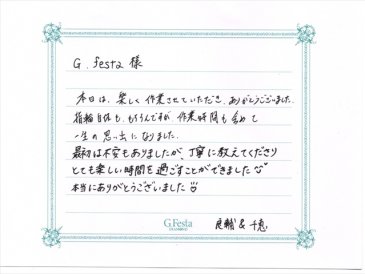 G.festa 様
本日は、楽しく作業させていただき、ありがとうございました。
指輪自体も、もちろんですが、作業時間も含めて
一生の思い出になりました。
最初は不安もありましたが、丁寧に教えてくださり
とても楽しい時間を過ごすことができました
本当にありがとうございました
G.Festa
良輔 & 千恵